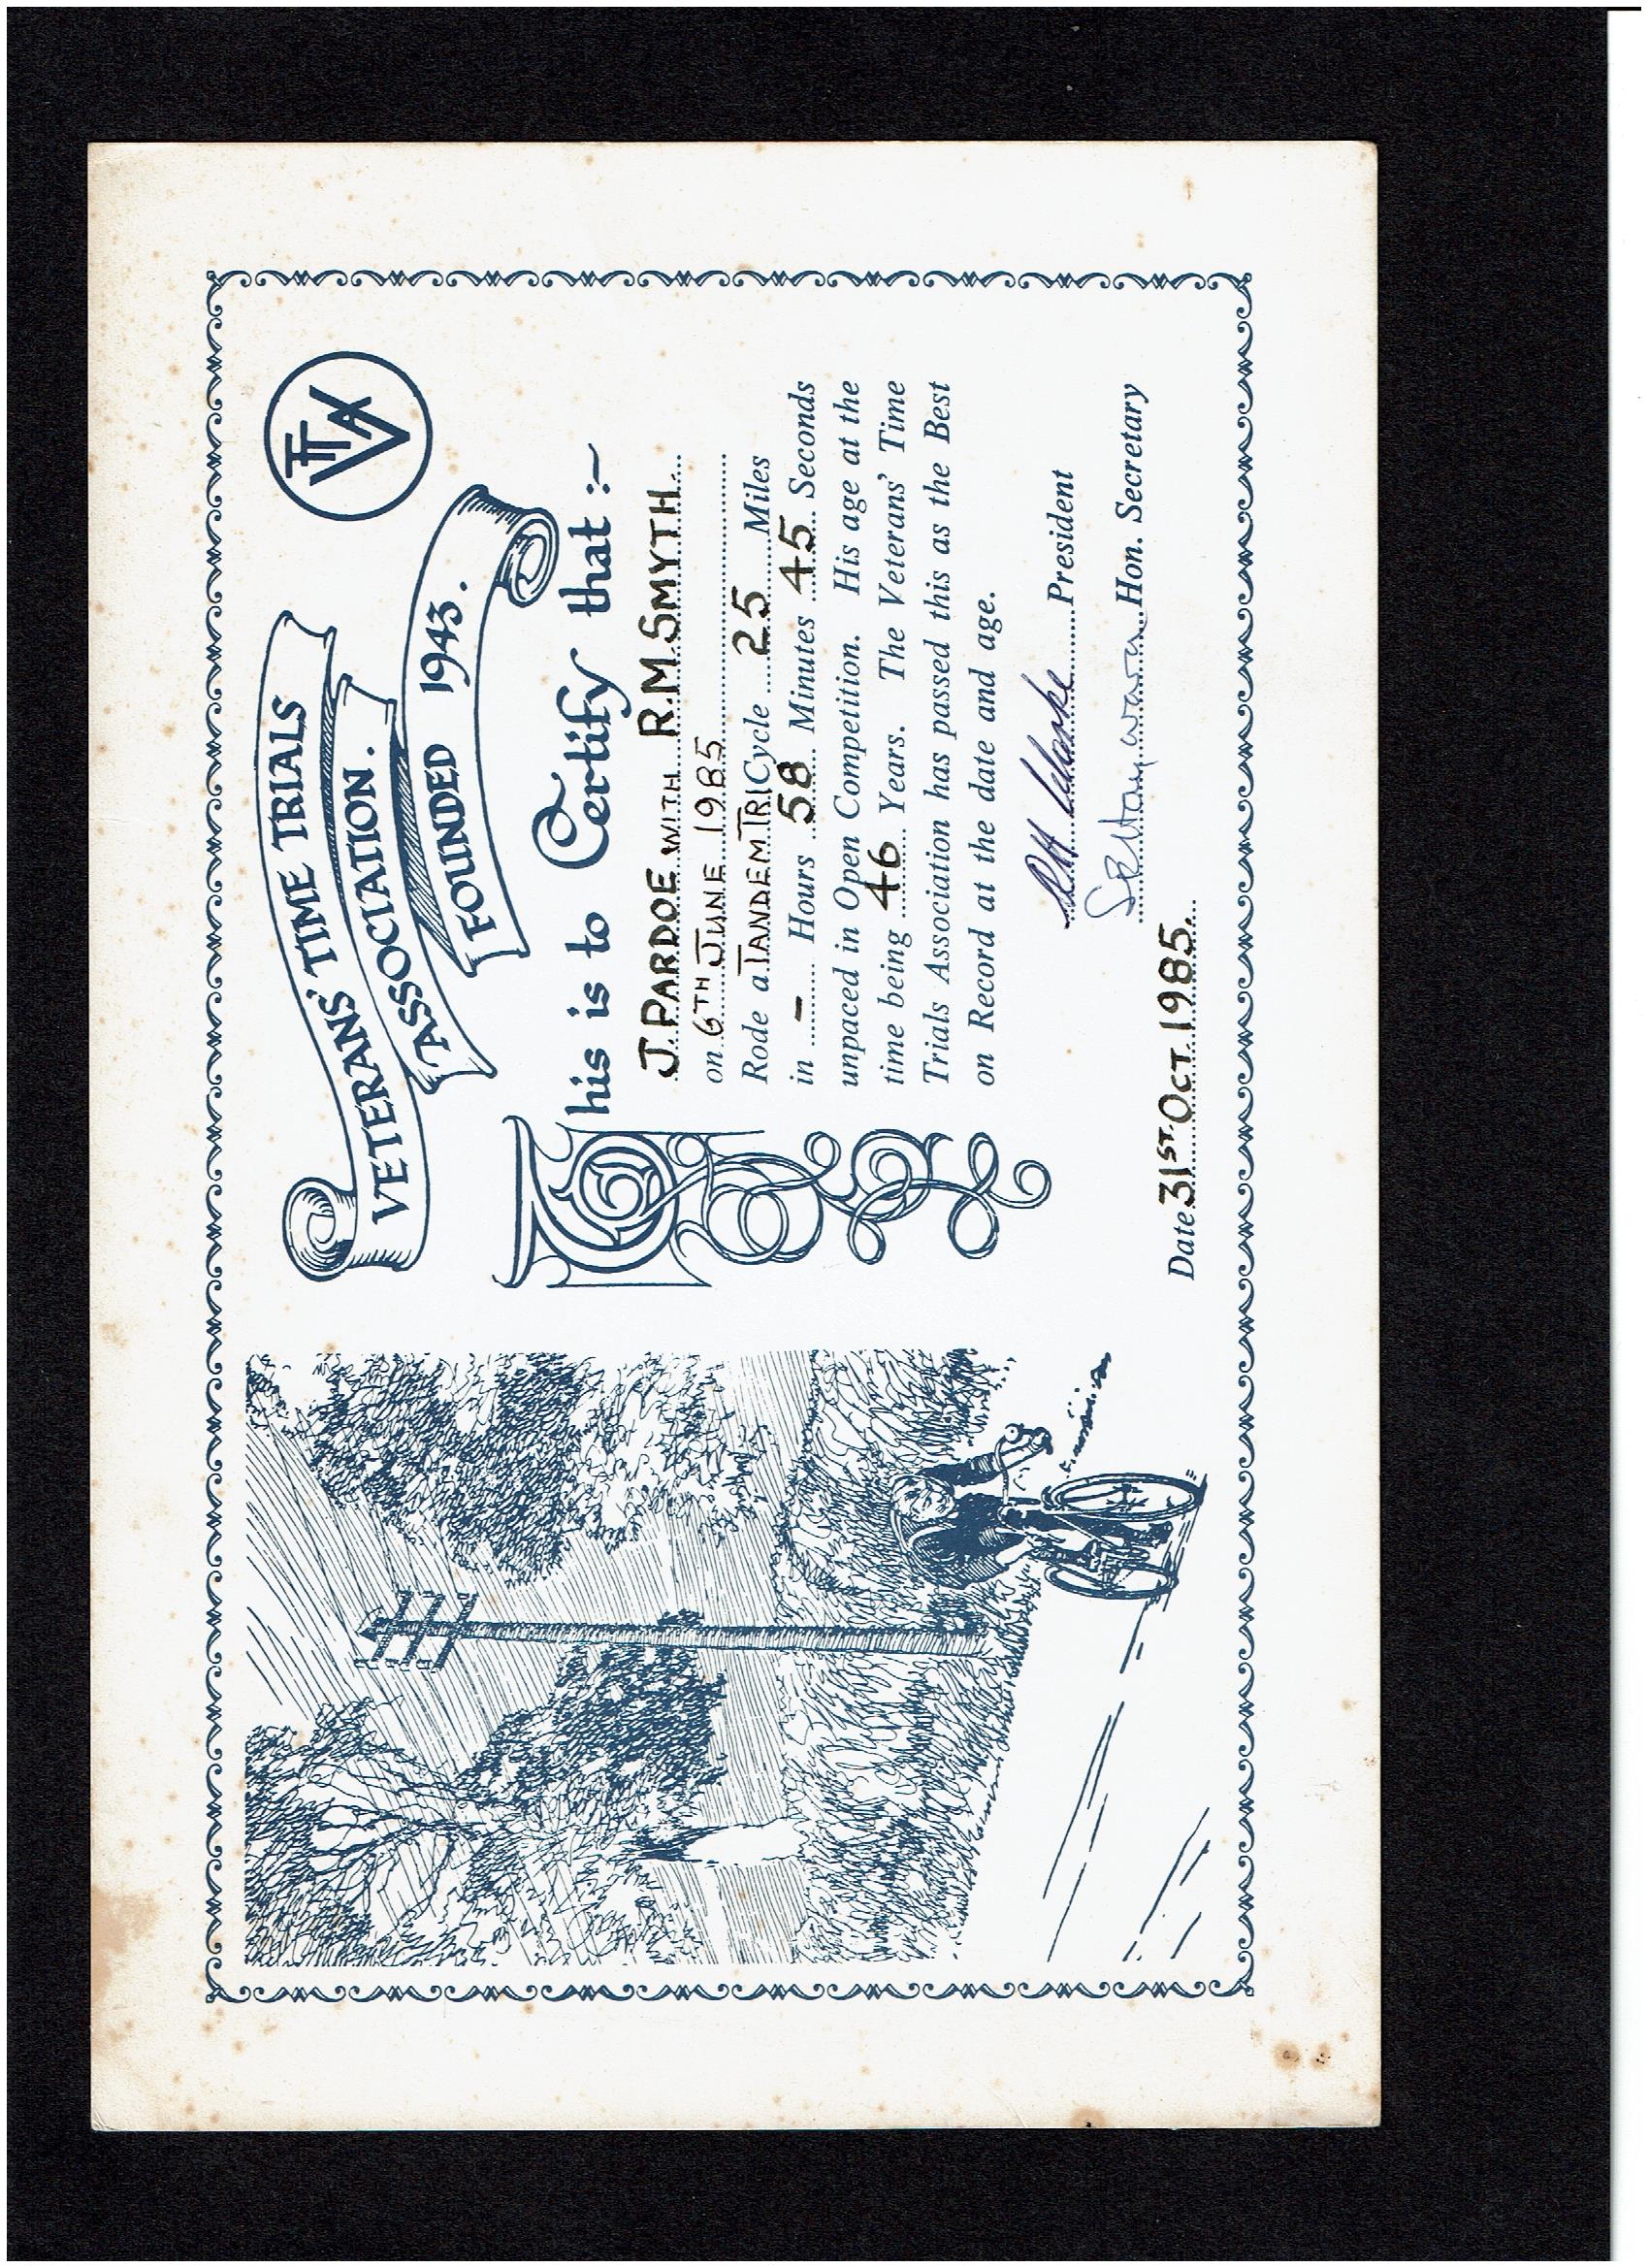 VETERANS' TIME TRIALS
ASSOCIATION.
FOUNDED 1943.
VTTA
This is to Certify that :~
J. PARDOE WITH R.M. SMYTH
on 6TH JUNE 1985
Rode a TANDEM TRICycle 25 Miles
in – Hours 58 Minutes 45 Seconds
unpaced in Open Competition. His age at the
time being 46 Years. The Veterans' Time
Trials Association has passed this as the Best
on Record at the date and age.
President
Hon. Secretary
Date 31ST OCT. 1985.